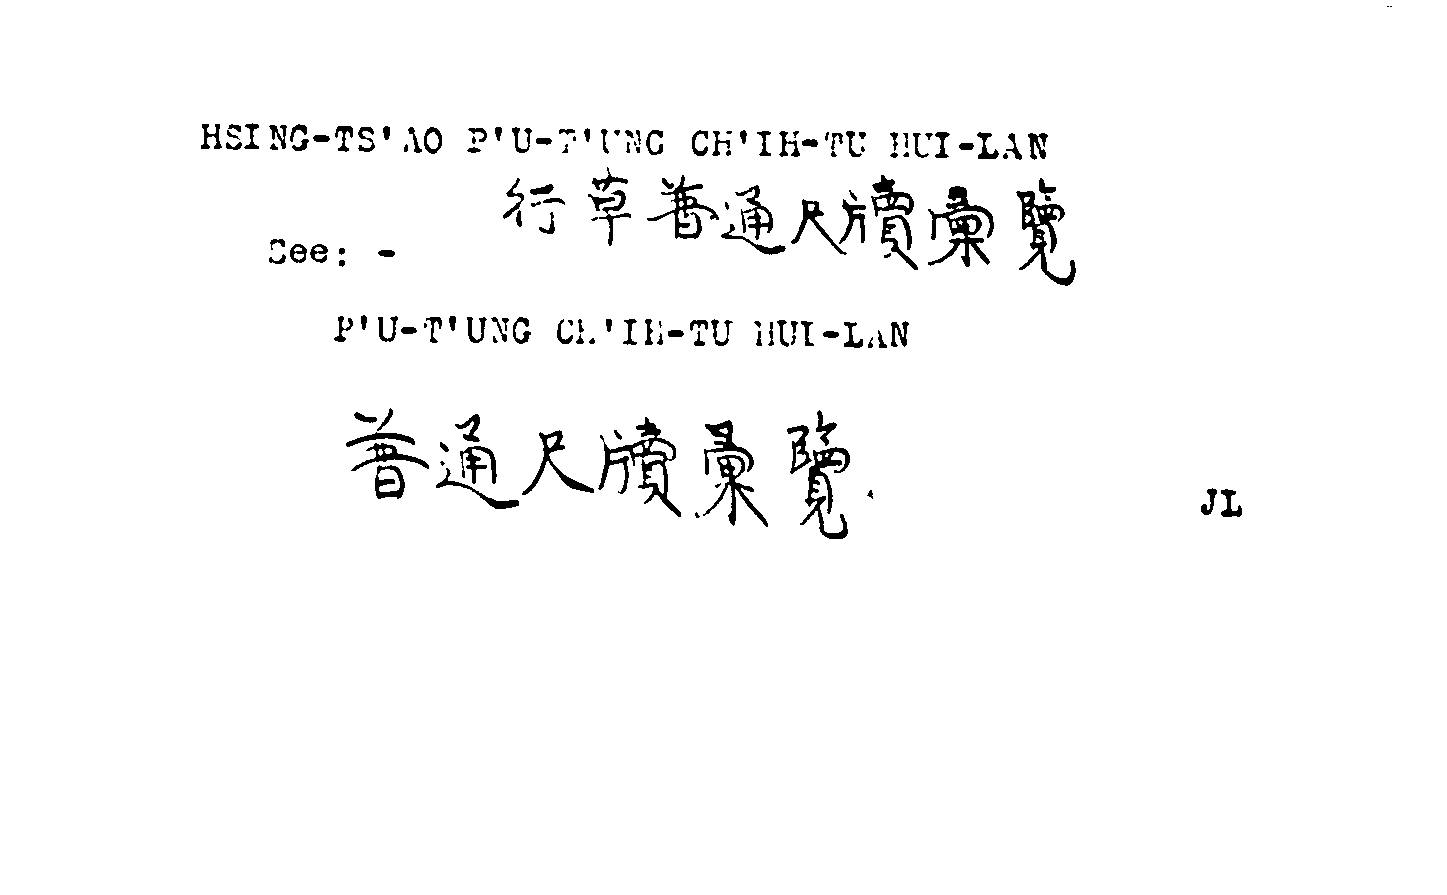 HSING-TS'AO P'U-T'UNG CH'IH-TU HUI-LAN
行草普通尺牘彙覽
See: -
P'U-T'UNG CH'IH-TU HUI-LAN
普通尺牘彙覽.
JL